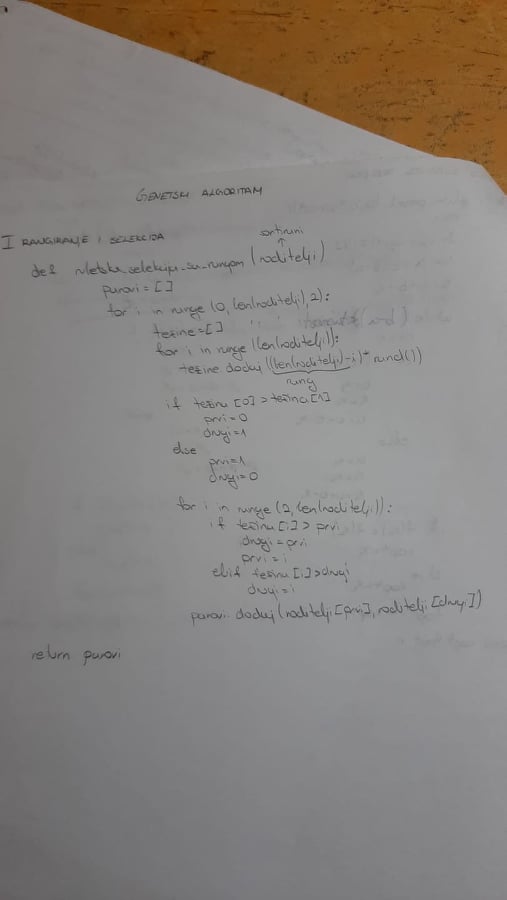 GENETSKI ALGORITAM
I RANGIRANJE I SELEKCIJA
sortirani
def ruletska_selekcija_sa_rangom (roditelji)
parovi = []
for i in range (0, len(roditelji), 2):
težine = []
for i in range (len(roditelji)):
težine dodaj ((len(roditelji) - i) * rand())
rang
if težina [0] > težina [1]
prvi = 0
drugi = 1
else
prvi = 1
drugi = 0
for i in range (2, len(roditelji)):
if težina [i] > prvi
drugi = prvi
prvi = i
elif težina [i] > drugi
drugi = i
parovi. dodaj (roditelji [prvi], roditelji [drugi])
return parovi